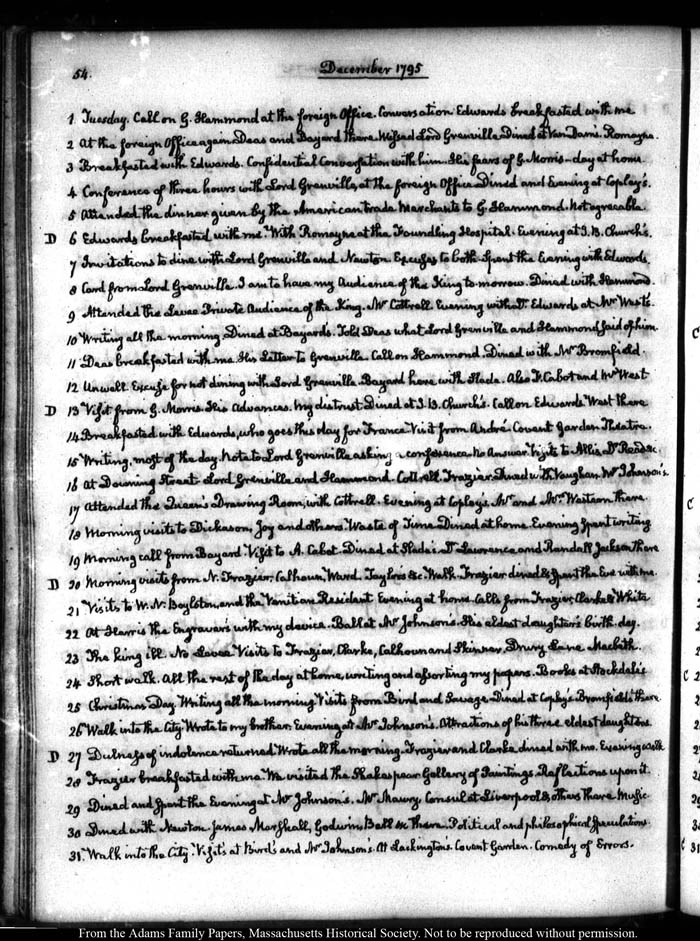 54.
December 1795
1 Tuesday. Call on G. Hammond at the foreign Office. Conversation. Edwards breakfasted with me
2 At the foreign Office again. Deas and Bayard there. Missed Lord Grenville. Dined at Van Dam's. Romayne.
3 Breakfasted with Edwards. Confidential Conversation with him. His fears of G. Morris—day at home.
4 Conference of three hours with Lord Grenville, at the foreign Office. Dined and Evening at Copley's.
5 Attended the dinner given by the American trade Merchants to G. Hammond. Not agreable.
D 6 Edwards breakfasted with me. With Romayne at the Foundling Hospital. Evening at J. B. Church's.
7 Invitations to dine with Lord Grenville and Newton. Excuses to both. Spent the Evening with Edwards.
8 Card from Lord Grenville. I am to have my Audience of the King to-morrow. Dined with Hammond.
9 Attended the Levee Private Audience of the King. Mr. Cottrell. Evening with Dr. Edwards at Mr. West's.
10 Writing all the morning. Dined at Bayard's. Told Deas what Lord Grenville and Hammond said of him.
11 Deas breakfasted with me. His Letter to Grenville. Call on Hammond. Dined with Mr Bromfield.
12 Unwell. Excuse for not dining with Lord Grenville. Bayard here with Slade. Also F. Cabot and Mr West
D 13 Visit from G. Morris. His Advances. My distrust. Dined at J. B. Church's. Call on Edwards. West there
14 Breakfasted with Edwards, who goes this day for France. Visit from André. Covent Garden Theatre.
15 Writing, most of the day. Note to Lord Grenville asking a conference. No Answer. Visits to Allis. Dr Read &c.
16 At Downing Street. Lord Grenville and Hammond. Cottrell. Frazier. Dined with Vaughan. Mr Johnson's.
17 Attended the Queen's Drawing Room, with Cottrell. Evening at Copley's. Mr. and Mrs. Waitson there.
18 Morning visits to Dickason, Joy and others. Waste of Time. Dined at home. Evening spent writing
19 Morning call from Bayard. Visit to A. Cabot. Dined at Slade's. Dr Lawrence and Randall Jackson there
D 20 Morning visits from N. Frazier, Calhoun, Ward. Taylors &c. Walk. Frazier dined & spent the Eve with me.
21 Visits to W. N. Boylston, and the Venitian Resident. Evening at home. Calls from Frazier, Clarke & White
22 At Harris the Engraver's with my device. Ball at Mr Johnson's. His eldest daughter's birth-day.
23 The king ill. No Levee. Visits to Frazier, Clarke, Calhoun and Skinner. Drury Lane. Macbeth.
24 Short walk. All the rest of the day at home, writing and assorting my papers. Books at Stockdale's
25 Christmas Day. Writing all the morning. Visits from Bird and Savage. Dined at Copley's. Bromfield there.
26 Walk into the City. Wrote to my brother. Evening at Mr Johnson's. Attractions of his three eldest daughters.
D 27 Dulness of indolence returned. Wrote all the morning. Frazier and Clarke dined with me. Evening walk
28 Frazier breakfasted with me. We visited the Shakespear Gallery of Paintings. Reflections upon it.
29 Dined and spent the Evening at Mr Johnson's. Mr. Maury, Consul at Liverpool & others there. Music
30 Dined with Newton. James Marshall, Godwin, Ball &c there. Political and philosophical speculations.
31. Walk into the City. Visits at Bird's and Mr Johnson's. At Lackington's. Covent Garden. Comedy of Errors.
From the Adams Family Papers, Massachusetts Historical Society. Not to be reproduced without permission.